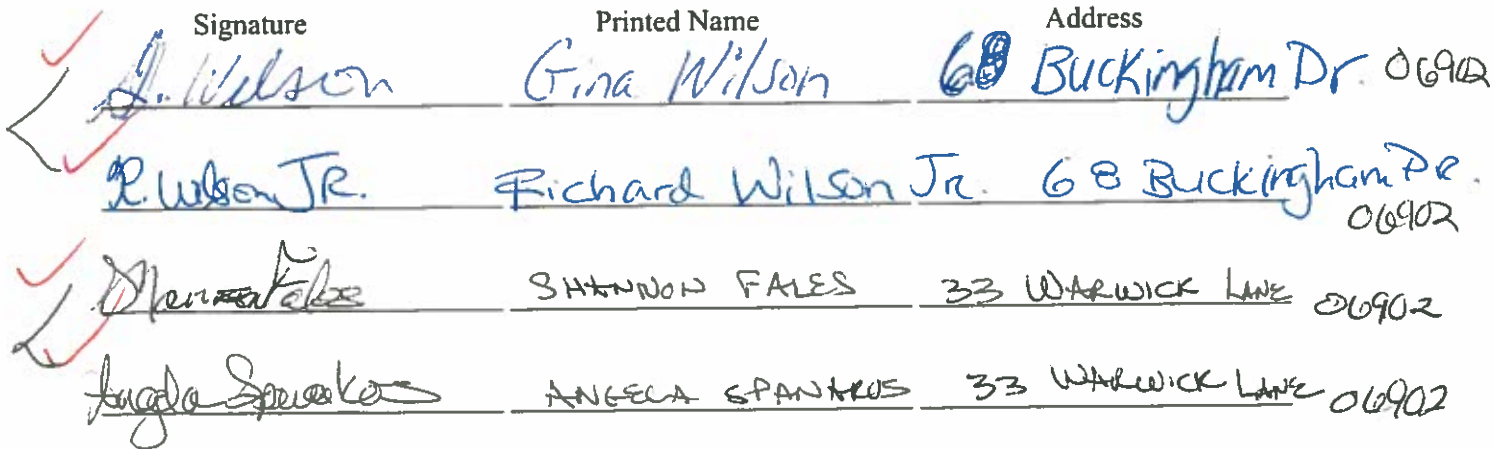 Signature Printed Name Address
G. Wilson Gina Wilson 68 Buckingham Dr. 06902
R. Wilson JR. Richard Wilson Jr. 68 Buckingham DR.
06902
Shannon Fales SHANNON FALES 33 WARWICK LANE 06902
Angela ANGELA 33 WARWICK LANE 06902